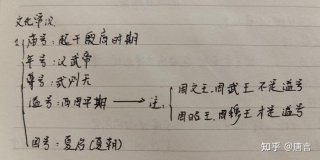 文化常识
1. 庙号:起于殷商时期
年号:汉武帝
尊号:武则天
谥号:西周早期 → 注:
周文王、周武王不是谥号
周昭王、周穆王才是谥号
国号:夏后(夏朝)
知乎 @唐言